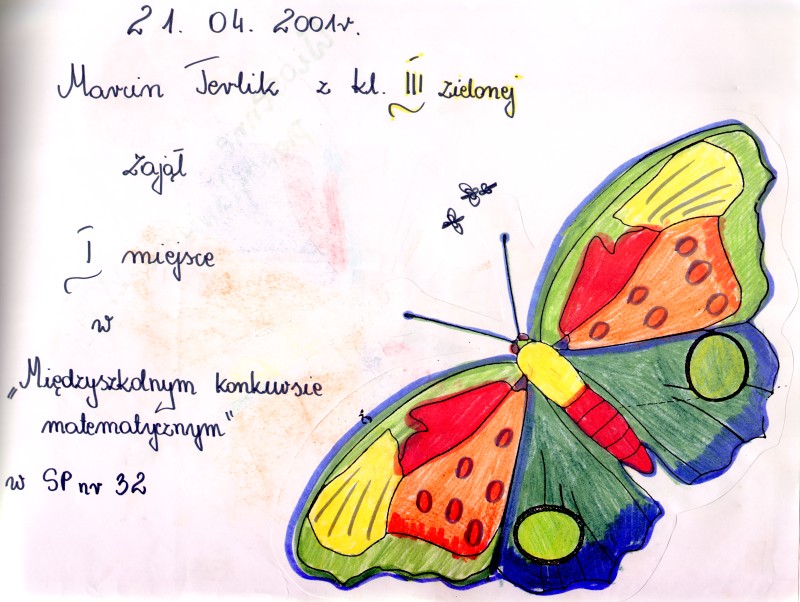 21. 04. 2001r.
Marcin Terlik z kl. III zielonej
zajął
I miejsce
w
„Międzyszkolnym konkursie
matematycznym"
w SP nr 32